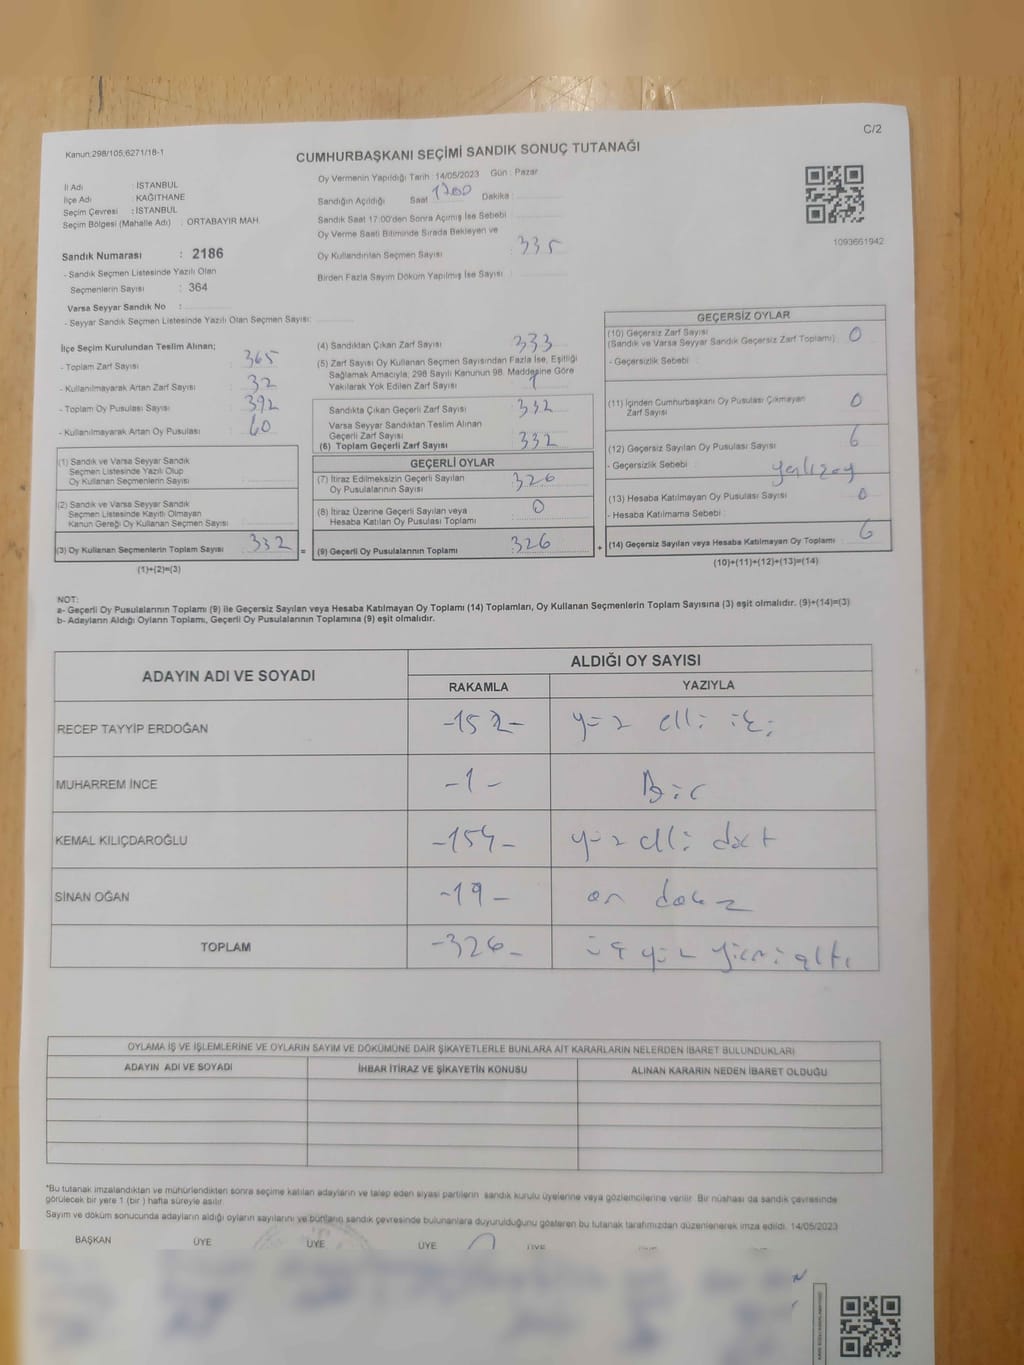 C/2
Kanun:298/105;6271/18-1
CUMHURBAŞKANI SEÇİMİ SANDIK SONUÇ TUTANAĞI
İl Adı : İSTANBUL
İlçe Adı : KAĞITHANE
Seçim Çevresi : İSTANBUL
Seçim Bölgesi (Mahalle Adı) : ORTABAYIR MAH.
Sandık Numarası : 2186
- Sandık Seçmen Listesinde Yazılı Olan
Seçmenlerin Sayısı : 364
Varsa Seyyar Sandık No :
- Seyyar Sandık Seçmen Listesinde Yazılı Olan Seçmen Sayısı:
Oy Vermenin Yapıldığı Tarih : 14/05/2023 Gün : Pazar
Sandığın Açıldığı Saat 1700 Dakika :
Sandık Saat 17:00'den Sonra Açımış İse Sebebi
Oy Verme Saati Bitiminde Sırada Bekleyen ve
Oy Kullandırılan Seçmen Sayısı : 335
Birden Fazla Sayım Döküm Yapılmış İse Sayısı :
1093661942
İlçe Seçim Kurulundan Teslim Alınan;
- Toplam Zarf Sayısı : 365
- Kullanılmayarak Artan Zarf Sayısı : 32
- Toplam Oy Pusulası Sayısı : 392
- Kullanılmayarak Artan Oy Pusulası : 60
(1) Sandık ve Varsa Seyyar Sandık
Seçmen Listesinde Yazılı Olup
Oy Kullanan Seçmenlerin Sayısı :
(2) Sandık ve Varsa Seyyar Sandık
Seçmen Listesinde Kayıtlı Olmayan
Kanun Gereği Oy Kullanan Seçmen Sayısı :
(3) Oy Kullanan Seçmenlerin Toplam Sayısı : 332 =
(1)+(2)=(3)
(4) Sandıktan Çıkan Zarf Sayısı : 333
(5) Zarf Sayısı Oy Kullanan Seçmen Sayısından Fazla İse, Eşitliği
Sağlamak Amacıyla; 298 Sayılı Kanunun 98. Maddesine Göre
Yakılarak Yok Edilen Zarf Sayısı : 1
Sandıkta Çıkan Geçerli Zarf Sayısı : 332
Varsa Seyyar Sandıktan Teslim Alınan
Geçerli Zarf Sayısı
(6) Toplam Geçerli Zarf Sayısı : 332
GEÇERLİ OYLAR
(7) İtiraz Edilmeksizin Geçerli Sayılan
Oy Pusulalarının Sayısı : 326
(8) İtiraz Üzerine Geçerli Sayılan veya
Hesaba Katılan Oy Pusulası Toplamı : 0
(9) Geçerli Oy Pusulalarının Toplamı : 326 +
GEÇERSİZ OYLAR
(10) Geçersiz Zarf Sayısı
(Sandık ve Varsa Seyyar Sandık Geçersiz Zarf Toplamı) : 0
- Geçersizlik Sebebi :
(11) İçinden Cumhurbaşkanı Oy Pusulası Çıkmayan
Zarf Sayısı : 0
(12) Geçersiz Sayılan Oy Pusulası Sayısı : 6
- Geçersizlik Sebebi :
(13) Hesaba Katılmayan Oy Pusulası Sayısı : 0
- Hesaba Katılmama Sebebi :
(14) Geçersiz Sayılan veya Hesaba Katılmayan Oy Toplamı : 6
(10)+(11)+(12)+(13)=(14)
NOT:
a- Geçerli Oy Pusulalarının Toplamı (9) ile Geçersiz Sayılan veya Hesaba Katılmayan Oy Toplamı (14) Toplamları, Oy Kullanan Seçmenlerin Toplam Sayısına (3) eşit olmalıdır. (9)+(14)=(3)
b- Adayların Aldığı Oyların Toplamı, Geçerli Oy Pusulalarının Toplamına (9) eşit olmalıdır.
ADAYIN ADI VE SOYADI ALDIĞI OY SAYISI
RAKAMLA YAZIYLA
RECEP TAYYİP ERDOĞAN -152- yüz elli iki
MUHARREM İNCE -1- Bir
KEMAL KILIÇDAROĞLU -154- yüz elli dört
SİNAN OĞAN -19- on dokuz
TOPLAM -326- üç yüz yirmi altı
OYLAMA İŞ VE İŞLEMLERİNE VE OYLARIN SAYIM VE DÖKÜMÜNE DAİR ŞİKAYETLERLE BUNLARA AİT KARARLARIN NELERDEN İBARET BULUNDUKLARI
ADAYIN ADI VE SOYADI İHBAR İTİRAZ VE ŞİKAYETİN KONUSU ALINAN KARARIN NEDEN İBARET OLDUĞU
*Bu tutanak imzalandıktan ve mühürlendikten sonra seçime katılan adayların ve talep eden siyasi partilerin sandık kurulu üyelerine veya gözlemcilerine verilir. Bir nüshası da sandık çevresinde
görülecek bir yere 1 (bir) hafta süreyle asılır.
Sayım ve döküm sonucunda adayların aldığı oyların sayılarını ve bunların sandık çevresinde bulunanlara duyurulduğunu gösteren bu tutanak tarafımızdan düzenlenerek imza edildi. 14/05/2023
BAŞKAN ÜYE ÜYE ÜYE ÜYE